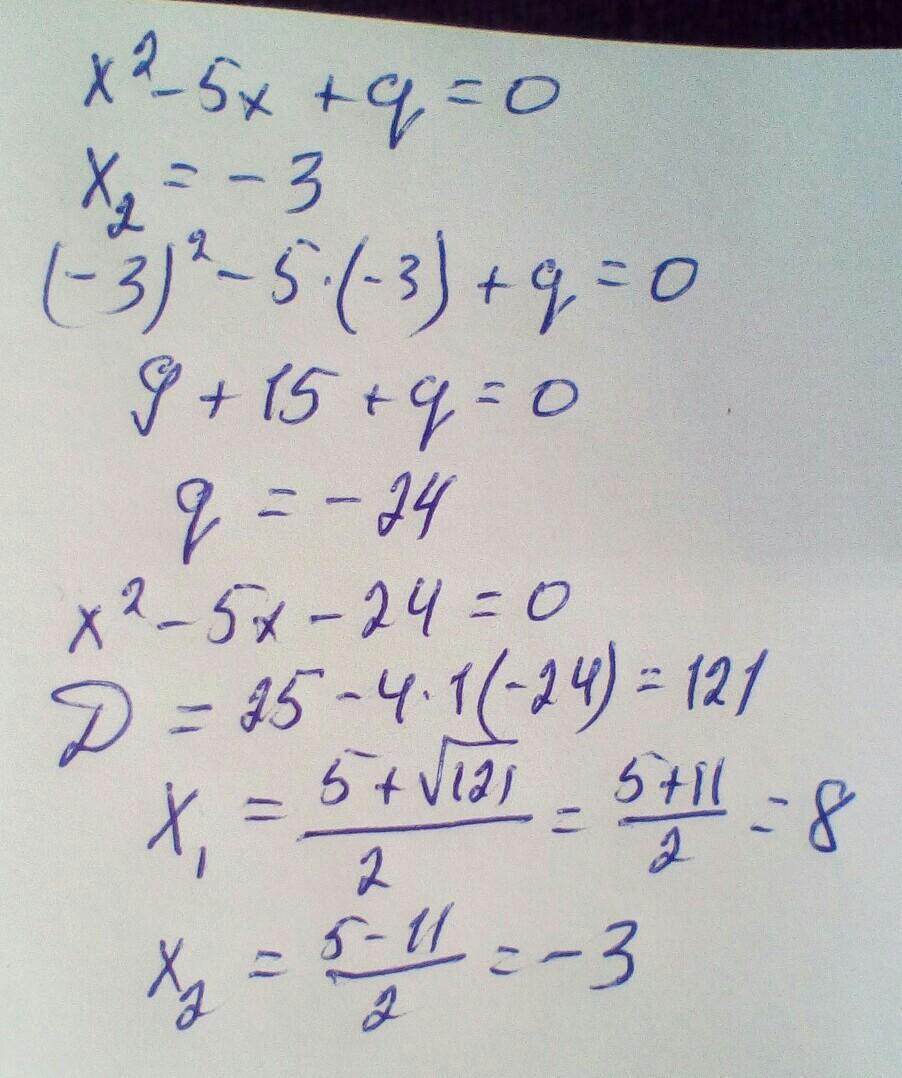 x² - 5x + q = 0
x₂ = -3
(-3)² - 5·(-3) + q = 0
9 + 15 + q = 0
q = -24
x² - 5x - 24 = 0
D = 25 - 4·1(-24) = 121
x₁ = (5 + √121)/2 = (5+11)/2 = 8
x₂ = (5 - 11)/2 = -3